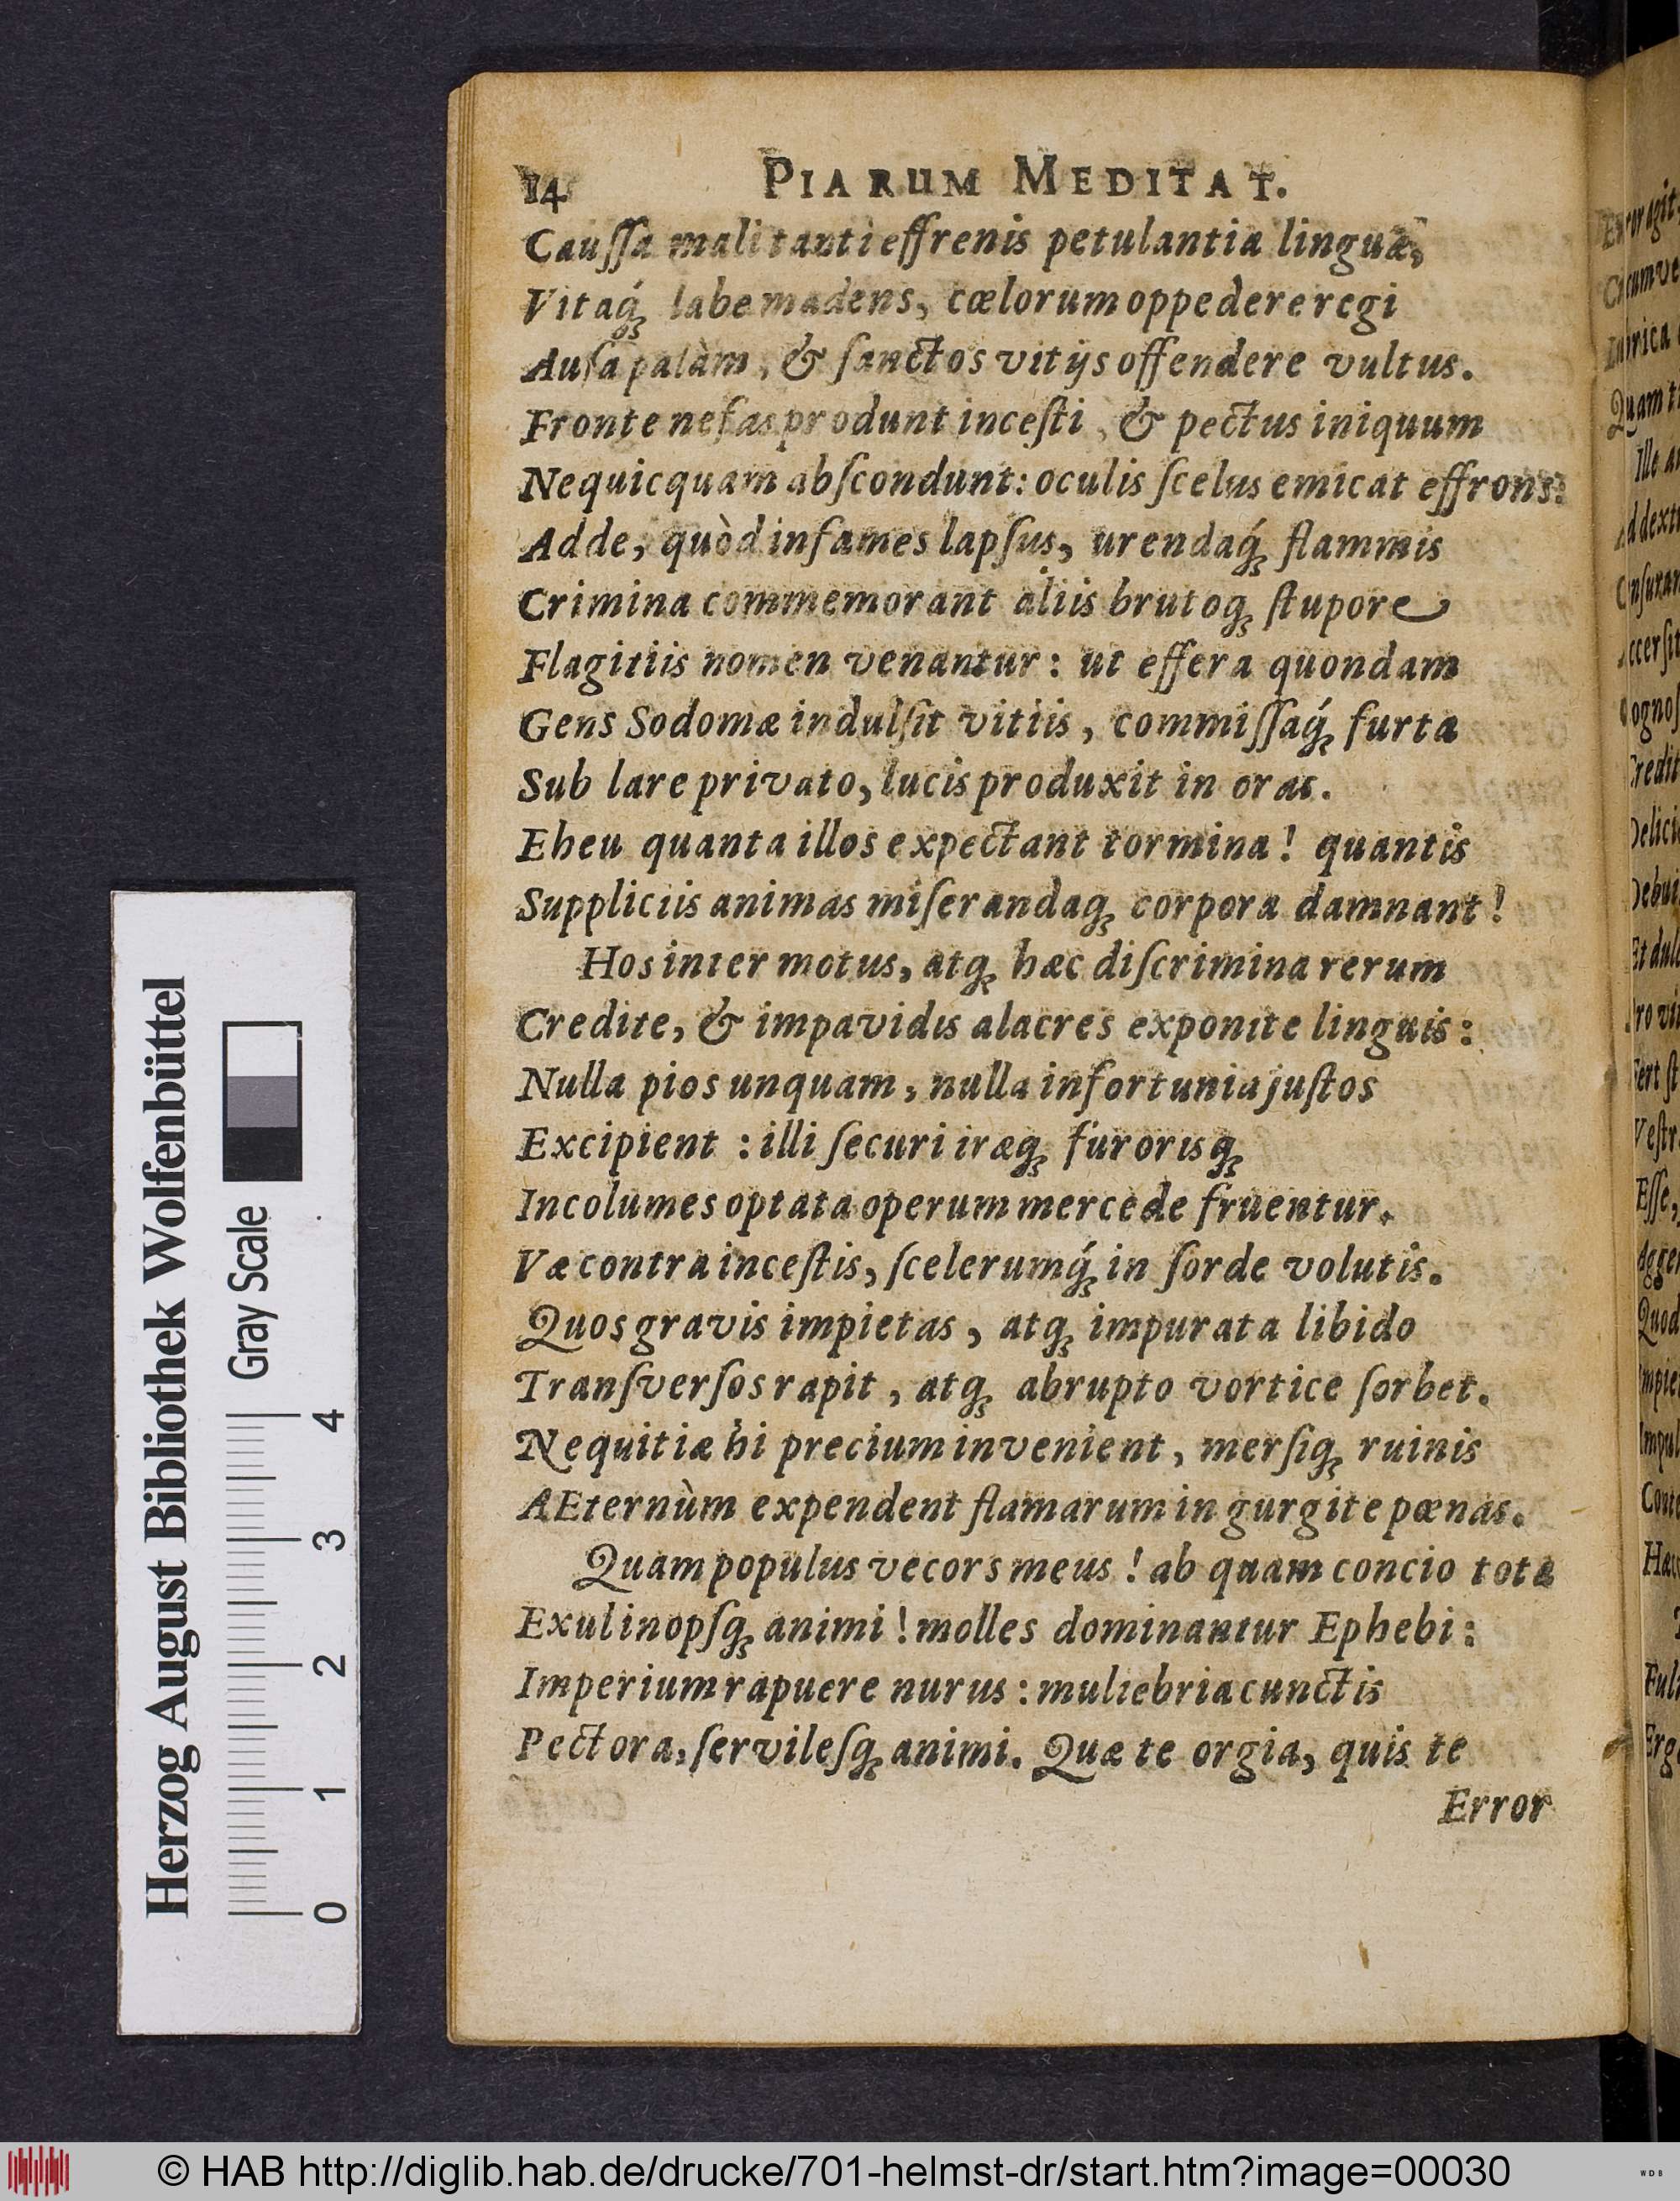 14 PIARUM MEDITAT.
Cauſſa mali tanti effrenis petulantia linguæ,
Vitaq́; labe madens, cœlorum oppedere regi
Auſa palàm, & ſanctos vitijs offendere vultus.
Fronte nefas produnt inceſti, & pectus iniquum
Nequicquam abſcondunt: oculis ſcelus emicat effrons:
Adde, quòd infames lapſus, urendaq́; flammis
Crimina commemorant aliis brutoq; ſtupore
Flagitiis nomen venantur: ut effera quondam
Gens Sodomæ indulſit vitiis, commiſſaq́; furta
Sub lare privato, lucis produxit in oras.
Eheu quanta illos expectant tormina! quantis
Suppliciis animas miſerandaq; corpora damnant!
Hos inter motus, atq; hæc diſcrimina rerum
Credite, & impavidis alacres exponite linguis:
Nulla pios unquam, nulla infortunia juſtos
Excipient: illi ſecuri iræq; furorisq;
Incolumes optata operum mercede fruentur.
Væ contra inceſtis, ſcelerumq́; in ſorde volutis.
Quos gravis impietas, atq; impurata libido
Tranſverſos rapit, atq; abrupto vortice ſorbet.
Nequitiæ hi precium invenient, merſiq; ruinis
AEternùm expendent flamarum in gurgite pœnas.
Quam populus vecors meus! ab quam concio tota
Exul inopſq; animi! molles dominantur Ephebi:
Imperium rapuere nurus: muliebria cunctis
Pectora, ſervileſq; animi. Quæ te orgia, quis te
Error
Herzog August Bibliothek Wolfenbüttel
Gray Scale
0 1 2 3 4
© HAB http://diglib.hab.de/drucke/701-helmst-dr/start.htm?image=00030